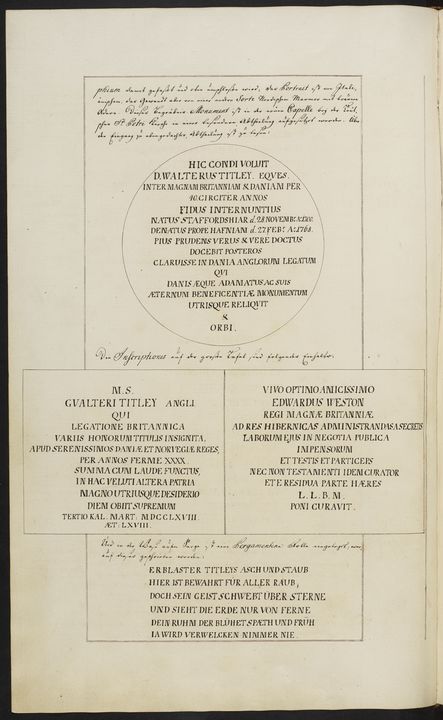 phium damit gefaßet und oben umschloßen wird. Das Portrait ist von Italie,
nischen, das Gewand aber von einer andern Sorte Nordischen Marmor mit braunen
Adern. Dieses Begräbnis Monument ist in der neuen Capelle bey der Teut,
schen St. Petri Kirche in einer besondern Abtheilung aufgeführet worden. Über
der Eingang zu obengedachter Abtheilung ist zu lesen:
HIC CONDI VOLUIT
D. WALTERUS TITLEY. EQVES.
INTER MAGNAM BRITANNIAM & DANIAM PER
40 CIRCITER ANNOS
FIDUS INTERNUNTIUS
NATUS STAFFORDSHIAR d. 28 NOVEMB: A:1700.
DENATUS PROPE HAFNIAM d. 27 FEB: A:1768.
PIUS PRUDENS VERUS & VERE DOCTUS
DOCEBIT POSTEROS
CLARUISSE IN DANIA ANGLORUM LEGATUM
QVI
DANIS ÆQUE ADAMATUS AC SUIS
ÆTERNUM BENEFICENTIÆ MONUMENTUM
UTRISQUE RELIQVIT
&
ORBI.
Die Inscriptiones auf der großen Tafel, sind folgendes Einhalts:
M. S.
GVALTERI TITLEY ANGLI
QUI
LEGATIONE BRITANNICA
VARIIS HONORUM TITULIS INSIGNITA,
APUD SERENISSIMOS DANIÆ ET NORVEGIÆ REGES,
PER ANNOS FERME XXXX.
SUMMA CUM LAUDE FUNCTUS,
IN HAC VELUTI ALTERA PATRIA
MAGNO UTRIUSQUE DESIDERIO
DIEM OBIIT SUPREMUM
TERTIO KAL. MART. MDCCLXVIII.
ÆT. LXVIII.
VIVO OPTIMO AMICISSIMO
EDWARDUS WESTON
REGI MAGNÆ BRITANNIÆ
AD RES HIBERNICAS ADMINISTRANDAS A SECRETIS
LABORUM EJUS IN NEGOTIA PUBLICA
IMPENSORUM
ET TESTIS ET PARTICEPS
NEC NON TESTAMENTI IDEM CURATOR
ET E RESIDUA PARTE HÆRES
L. L. B. M.
PONI CURAVIT.
Und in die aufm Sarge ist eine Bergamenten Rolle eingelegt, wor,
auf dieses geschrieben worden:
ERBLASTER TITLEYS ASCH UND STAUB
HIER IST BEWAHRT FÜR ALLER RAUB,
DOCH SEIN GEIST SCHWEBT ÜBER STERNE
UND SIEHT DIE ERDE NUR VON FERNE
DEIN RUHM DER BLÜHET SPÆTH UND FRÜH
IA WIRD VERWELCKEN NIMMER NIE.